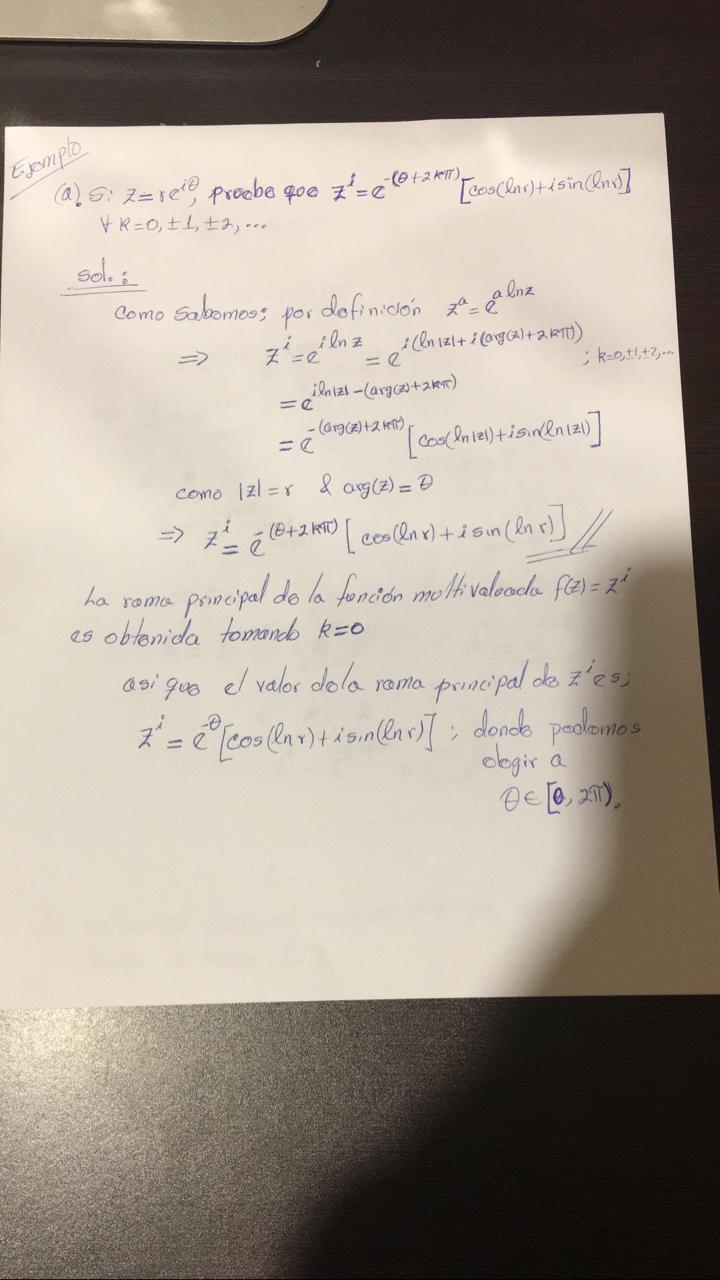 Ejemplo
(a). Si z=re^{iθ}, pruebe que z^i=e^{-(θ+2kπ)}[cos(ln r)+i sin(ln r)]
∀ k=0,±1,±2,...
sol.:
Como sabemos; por definición z^a=e^{a ln z}
⇒ z^i=e^{i ln z}=e^{i(ln|z|+i(arg(z)+2kπ))} ; k=0,±1,±2,...
=e^{i ln|z|-(arg(z)+2kπ)}
=e^{-(arg(z)+2kπ)}[cos(ln|z|)+i sin(ln|z|)]
como |z|=r & arg(z)=θ
⇒ z^i=e^{-(θ+2kπ)}[cos(ln r)+i sin(ln r)] //
La rama principal de la función multivaluada f(z)=z^i
es obtenida tomando k=0
asi que el valor de la rama principal de z^i es;
z^i=e^{-θ}[cos(ln r)+i sin(ln r)] ; donde podemos
elegir a
θ∈[0,2π).